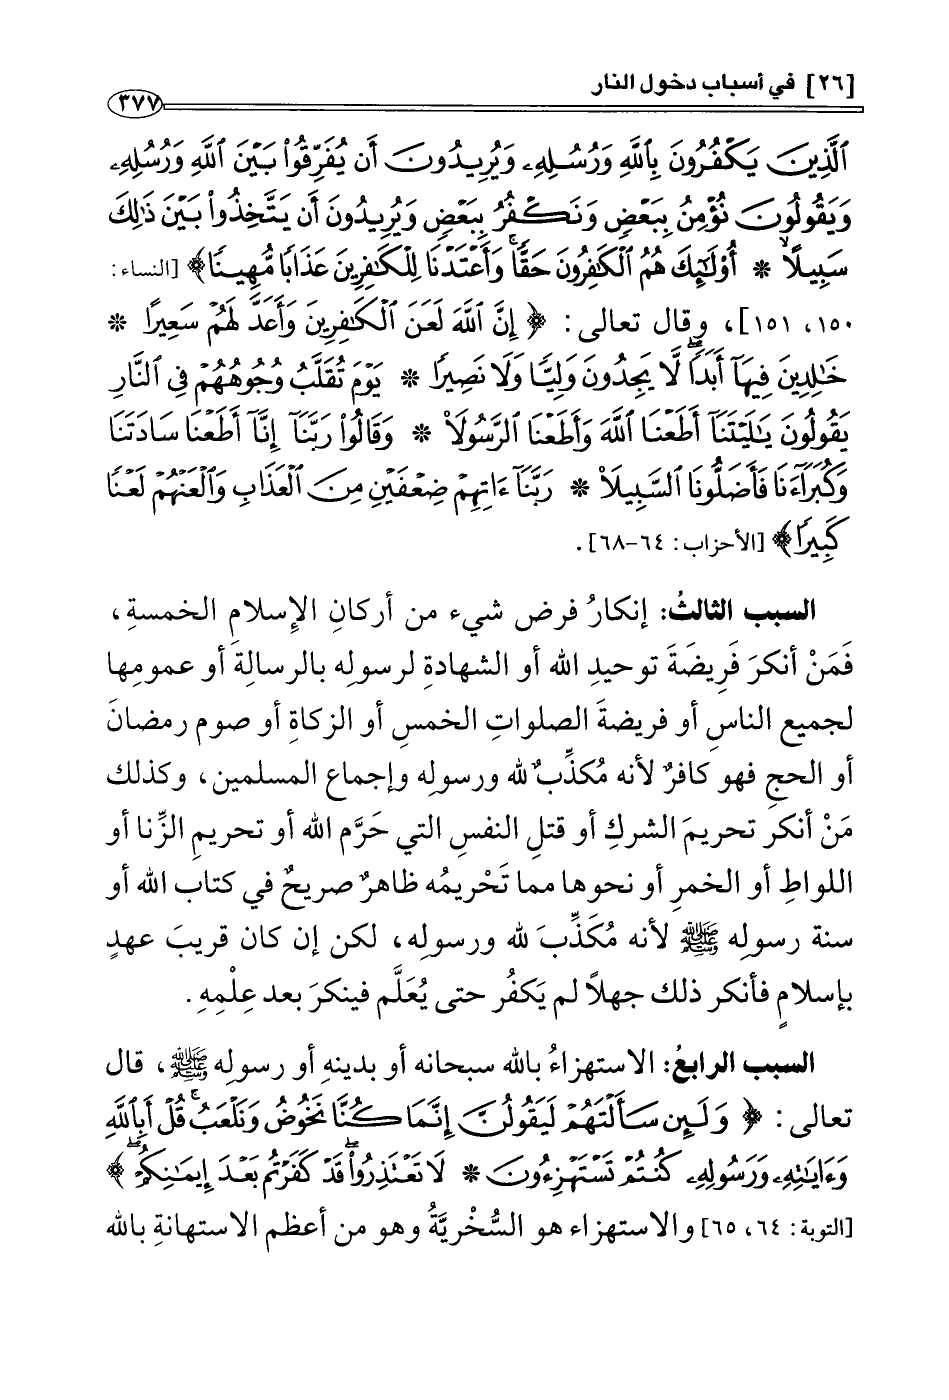 [٢٦] في أسباب دخول النار
٣٧٧
ٱلَّذِينَ يَكْفُرُونَ بِٱللَّهِ وَرُسُلِهِۦ وَيُرِيدُونَ أَن يُفَرِّقُوا۟ بَيْنَ ٱللَّهِ وَرُسُلِهِۦ
وَيَقُولُونَ نُؤْمِنُ بِبَعْضٍ وَنَكْفُرُ بِبَعْضٍ وَيُرِيدُونَ أَن يَتَّخِذُوا۟ بَيْنَ ذَٰلِكَ
سَبِيلًا ۙ * أُو۟لَٰٓئِكَ هُمُ ٱلْكَٰفِرُونَ حَقًّا ۚ وَأَعْتَدْنَا لِلْكَٰفِرِينَ عَذَابًا مُّهِينًا﴾ [النساء:
١٥٠، ١٥١]، وقال تعالى: ﴿إِنَّ ٱللَّهَ لَعَنَ ٱلْكَٰفِرِينَ وَأَعَدَّ لَهُمْ سَعِيرًا *
خَٰلِدِينَ فِيهَآ أَبَدًا ۖ لَّا يَجِدُونَ وَلِيًّا وَلَا نَصِيرًا * يَوْمَ تُقَلَّبُ وُجُوهُهُمْ فِى ٱلنَّارِ
يَقُولُونَ يَٰلَيْتَنَآ أَطَعْنَا ٱللَّهَ وَأَطَعْنَا ٱلرَّسُولَا۠ * وَقَالُوا۟ رَبَّنَآ إِنَّآ أَطَعْنَا سَادَتَنَا
وَكُبَرَآءَنَا فَأَضَلُّونَا ٱلسَّبِيلَا۠ * رَبَّنَآ ءَاتِهِمْ ضِعْفَيْنِ مِنَ ٱلْعَذَابِ وَٱلْعَنْهُمْ لَعْنًا
كَبِيرًا﴾ [الأحزاب: ٦٤-٦٨].
السبب الثالثُ: إنكارُ فرض شيء من أركانِ الإسلامِ الخمسةِ،
فَمَنْ أنكرَ فَرِيضَةَ توحيدِ الله أو الشهادةِ لرسولِه بالرسالةِ أو عمومِها
لجميعِ الناسِ أو فريضةَ الصلواتِ الخمسِ أو الزكاةِ أو صومِ رمضانَ
أو الحجِ فهو كافرٌ لأنه مُكذِّبٌ لله ورسولِه وإجماعِ المسلمين، وكذلك
مَنْ أنكرَ تحريمَ الشركِ أو قتلِ النفسِ التي حَرَّم الله أو تحريمِ الزِّنا أو
اللواطِ أو الخمرِ أو نحوها مما تَحْريمُه ظاهرٌ صريحٌ في كتاب الله أو
سنة رسولِه ﷺ لأنه مُكَذِّبَ لله ورسولِه، لكن إن كان قريبَ عهدٍ
بإسلامٍ فأنكر ذلك جهلاً لم يَكفُر حتى يُعَلَّم فينكرَ بعد عِلْمِهِ.
السبب الرابعُ: الاستهزاءُ بالله سبحانه أو بدينهِ أو رسولِه ﷺ، قال
تعالى: ﴿وَلَئِن سَأَلْتَهُمْ لَيَقُولُنَّ إِنَّمَا كُنَّا نَخُوضُ وَنَلْعَبُ ۚ قُلْ أَبِٱللَّهِ
وَءَايَٰتِهِۦ وَرَسُولِهِۦ كُنتُمْ تَسْتَهْزِءُونَ * لَا تَعْتَذِرُوا۟ ۖ قَدْ كَفَرْتُم بَعْدَ إِيمَٰنِكُمْ ۖ﴾
[التوبة: ٦٤، ٦٥] والاستهزاء هو السُّخْريَّةُ وهو من أعظم الاستهانةِ بالله